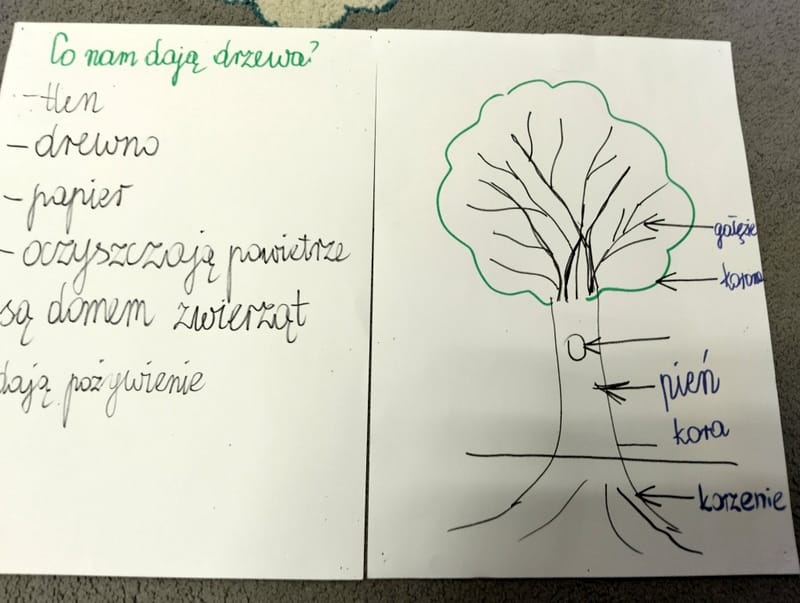 Co nam dają drzewa?
- tlen
- drewno
- papier
- oczyszczają powietrze
są domem zwierząt
dają pożywienie
gałęzie
korona
pień
kora
korzenie